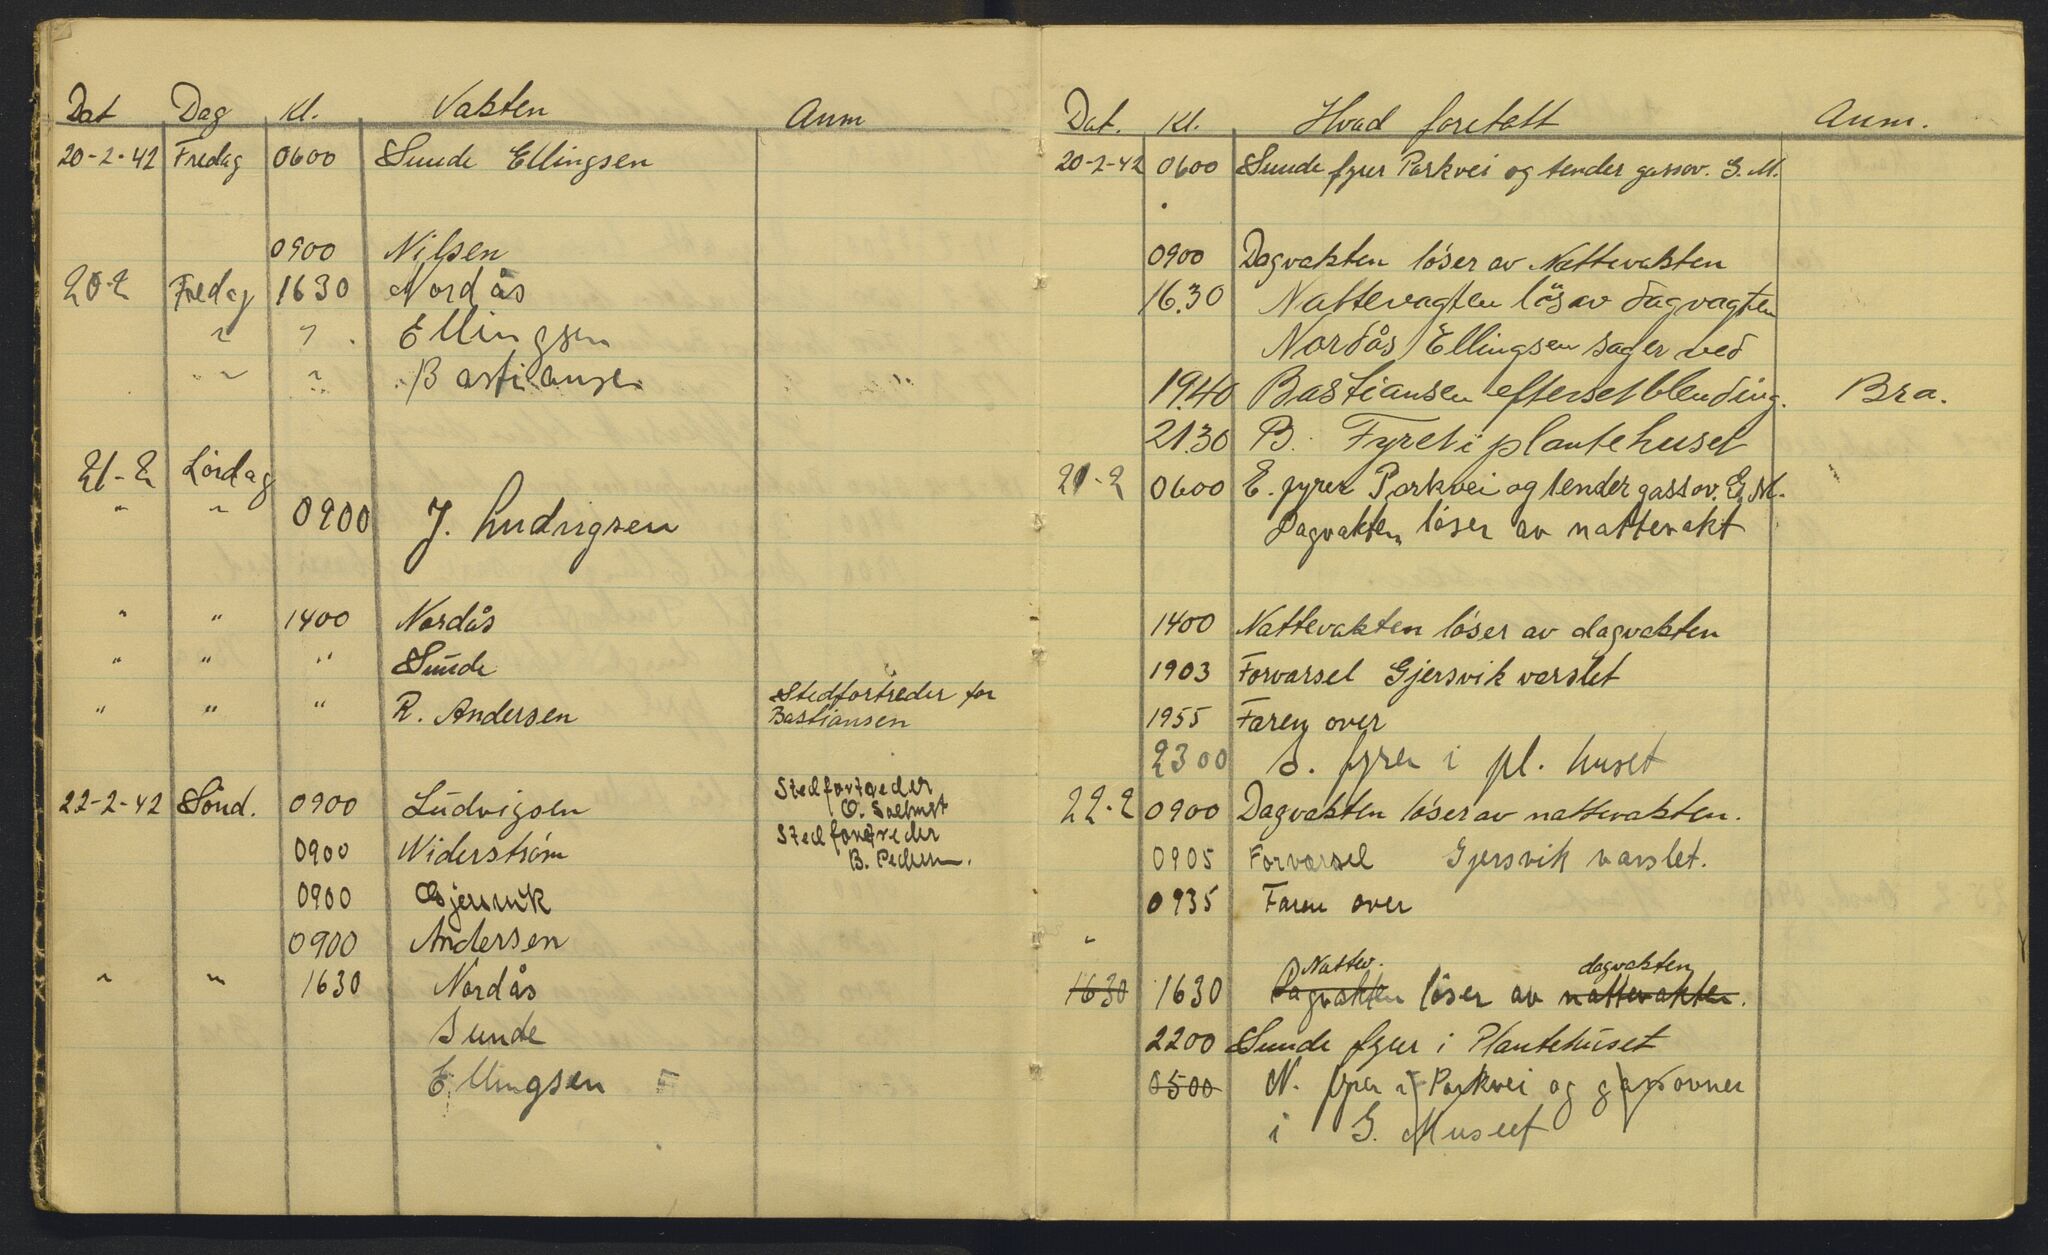 Dat Dag Kl. Vakten Anm
20-2-42 Fredag 0600 Sunde Ellingsen
0900 Nilsen
20-2 Fredag 1630 Nordås
" " Ellingsen
" " Bastiansen
21-2 Lördag
" " 0900 J. Ludvigsen
" " 1400 Nordås
" " " Sunde
" " " R. Andersen Stedfortreder for
Bastiansen
22-2-42 Sönd. 0900 Ludvigsen Stedfortreder
O.
0900 Widerström Stedfortreder
B. Pedersen.
0900 Gjersvik
0900 Andersen
" " 1630 Nordås
Sunde
Ellingsen
Dat. Kl. Hvad foretatt Anm.
20-2-42 0600 Sunde fyrer Parkvei og tender gassov. G. M.
0900 Dagvakten löser av Nattevakten
16.30 Nattevagten lös av dagvagten
Nordås Ellingsen sager ved
19.40 Bastiansen efterset blending. Bra.
21.30 B. Fyret i plantehuset
21-2 0600 E. fyrer Parkvei og tender gassov. G. M.
Dagvakten löser av nattevakt
1400 Nattevakten löser av dagvakten
1903 Forvarsel Gjersvik varslet
1955 Faren over
2300 S. fyrer i pl. huset
22-2 0900 Dagvakten löser av nattevakten.
0905 Forvarsel Gjersvik varslet.
0935 Faren over
"
Nattev. dagvakten
1630 1630 Dagvakten löser av nattevakten.
2200 Sunde fyrer i Plantehuset
0500 N. fyrer i Parkvei og gassovner
i G. Museet